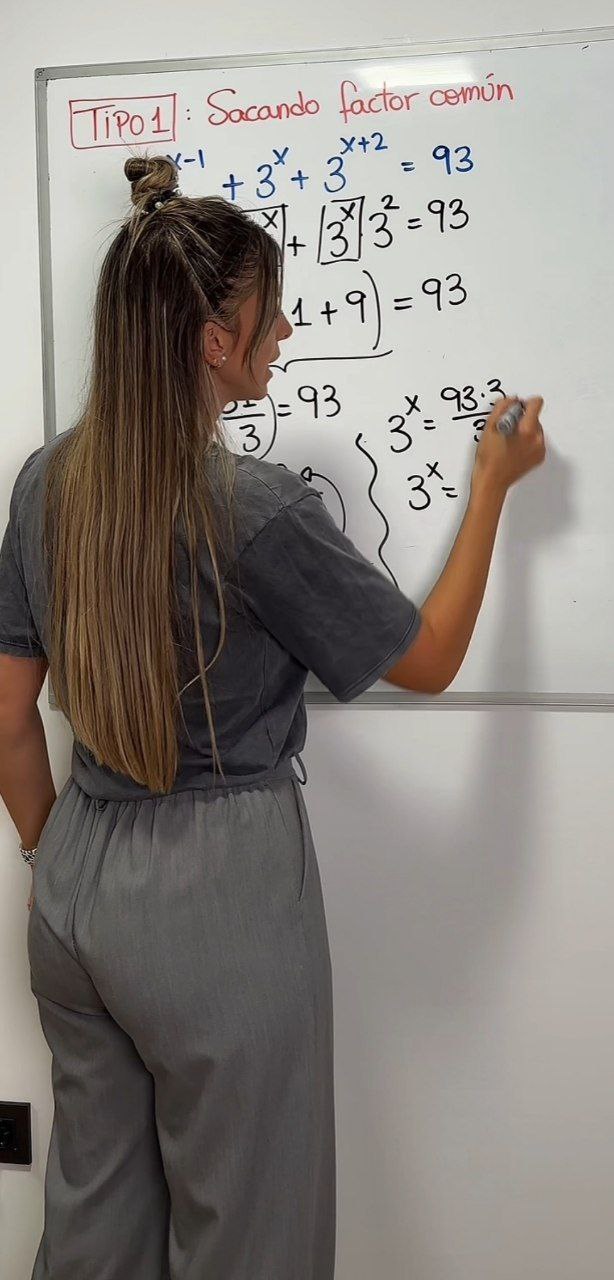 TIPO1 : Sacando factor común
x-1 + 3^x + 3^(x+2) = 93
x + 3^x 3^2 = 93
1 + 9) = 93
3) = 93
3^x = 93·3
3^x =